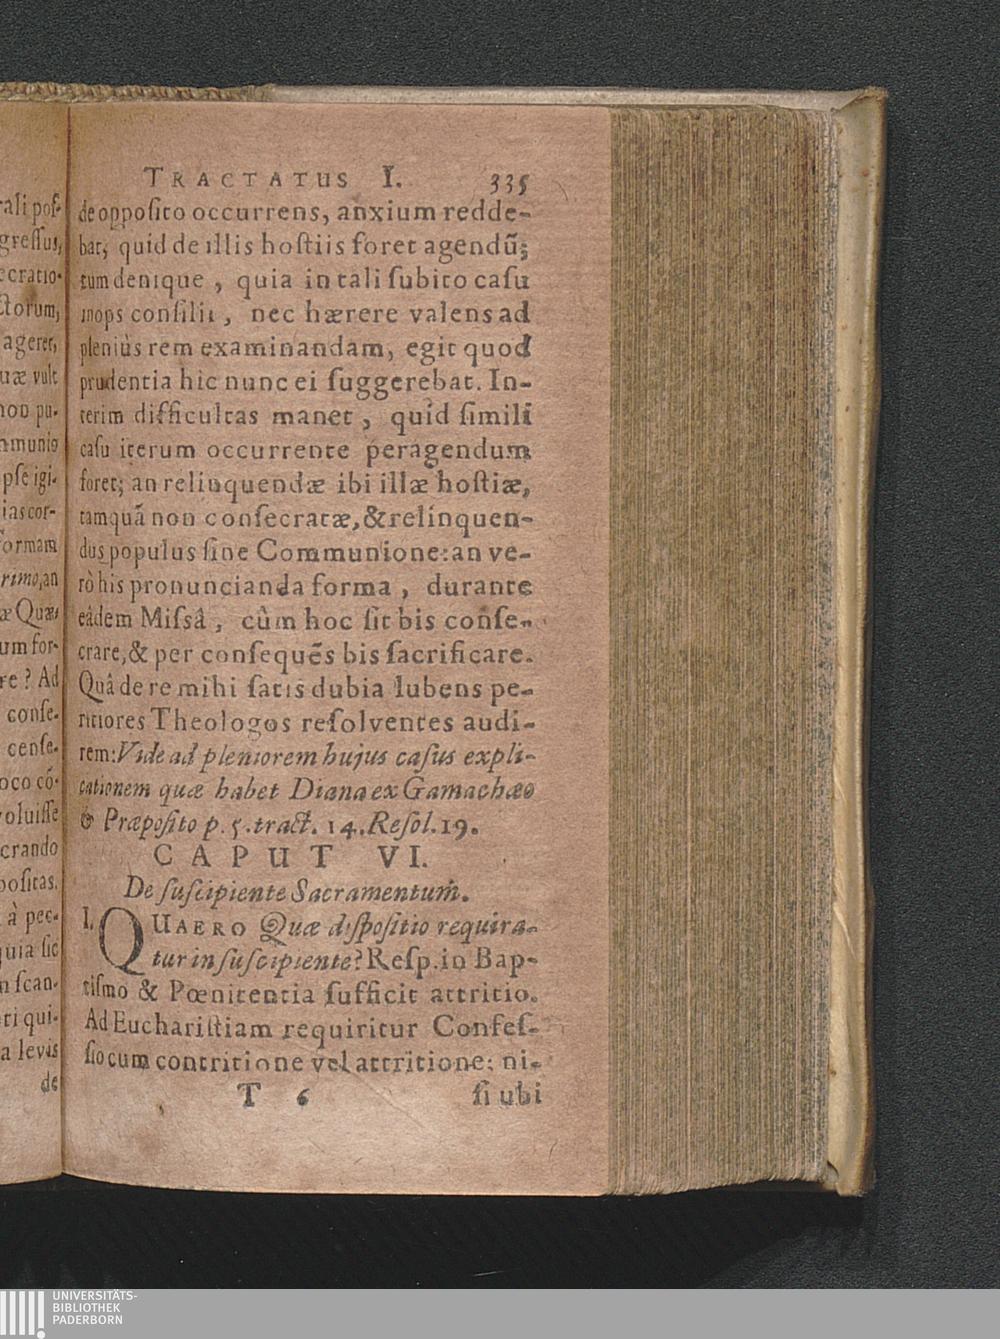 TRACTATUS I. 335
de opposito occurrens, anxium redde-
bat; quid de illis hostiis foret agendũ;
tum denique, quia in tali subito casu
inops consilii, nec hærere valens ad
pleniùs rem examinandam, egit quod
prudentia hic nunc ei suggerebat. In-
terim difficultas manet, quid simili
casu iterum occurrente peragendum
foret; an relinquendæ ibi illæ hostiæ,
tamquã non consecratæ, & relinquen-
dus populus sine Communione: an ve-
rò his pronuncianda forma, durante
eâdem Missâ, cùm hoc sit bis conse-
crare, & per consequẽs bis sacrificare.
Quâ de re mihi satis dubia lubens pe-
ritiores Theologos resolventes audi-
rem: Vide ad pleniorem hujus casus expli-
cationem quæ habet Diana ex Gamachæo
& Præposito p. 5. tract. 14. Resol. 19.
CAPUT VI.
De suscipiente Sacramentum.
I. QUAERO Quæ dispositio requira-
tur in suscipiente? Resp. in Bap-
tismo & Pœnitentia sufficit attritio.
Ad Eucharistiam requiritur Confes-
sio cum contritione vel attritione; ni-
T 6 si ubi
rali pos-
gressus,
ecratio-
ctorum,
ageret,
uæ vult
non pu-
mmunio
pse igi-
ias cor-
formam
rimo, an
æ Quæ,
um for-
re? Ad
conse-
cense-
oco cõ-
voluisse
crando
positas.
à pec-
quia sic
n scan-
ri qui-
a levis
de
UNIVERSITÄTS-
BIBLIOTHEK
PADERBORN